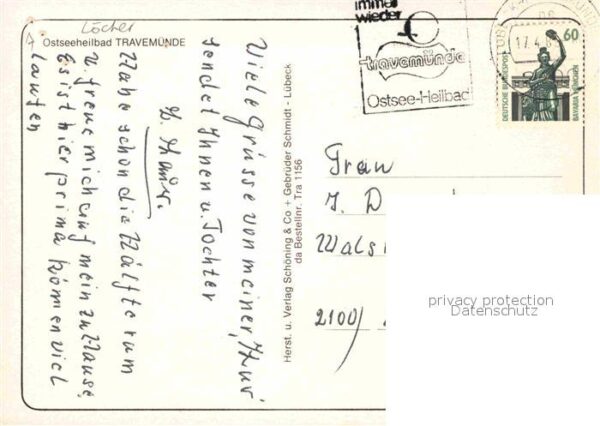 Löcher
Ostseeheilbad TRAVEMÜNDE
Viele Grüsse von meiner "Kur"
sendet Ihnen u. Tochter
Habe schon die Hälfte rum
u. freue mich auf mein zu Hause,
Es ist hier prima können viel
laufen
Herst. u. Verlag Schöning & Co + Gebrüder Schmidt - Lübeck
da Bestellnr. Tra 1156
immer
wieder
travemünde
Ostsee-Heilbad
17.4.
60
DEUTSCHE BUNDESPOST
BAVARIA MÜNCHEN
Frau
J. D
Wals
2100/
privacy protection
Datenschutz